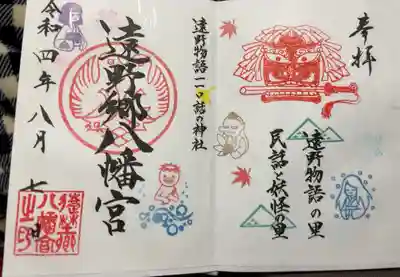 奉拝
遠野物語の里
民話と妖怪の里
遠野物語一一〇話の神社
遠野郷八幡宮
令和四年八月七日
遠野郷
八幡宮
之印